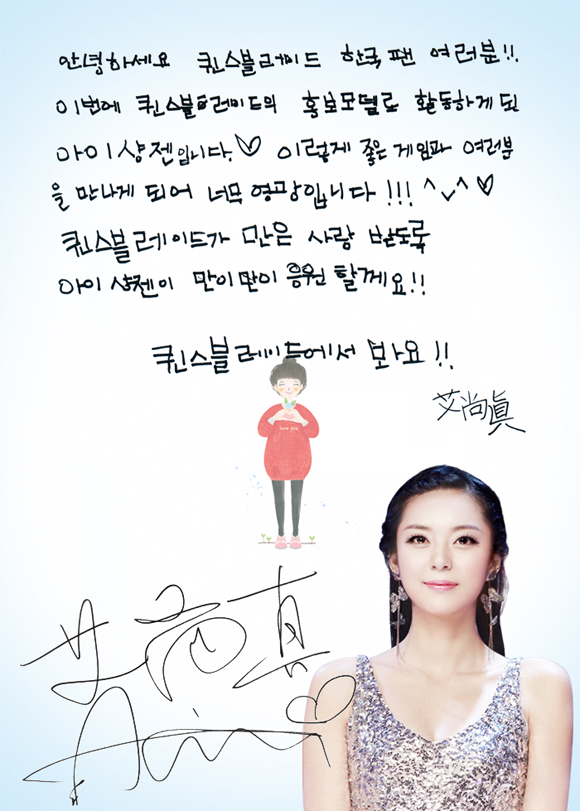 안녕하세요 퀸스블레이드 한국팬 여러분!!
이번에 퀸스블레이드의 홍보모델로 활동하게 된
아이샹젠입니다.♡ 이렇게 좋은 게임과 여러분
을 만나게 되어 너무 영광입니다!!! ^v^♡
퀸스블레이드가 만은 사랑 받도록
아이샹젠이 만이만이 응원 할께요!!
퀸스블레이드에서 보아요!!
艾尚真
love you
艾尚真